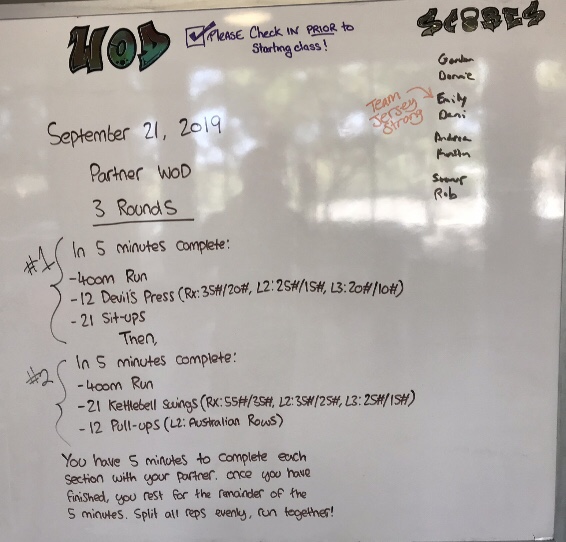 WOD
PLEASE Check IN PRIOR to
Starting class!
SCORES
Gordon
Donnie
Team
Jersey
Strong
Emily
Dani
Andrea
Rob
September 21, 2019
Partner WOD
3 Rounds
#1
In 5 minutes complete:
-400m Run
-12 Devil's Press (Rx: 35#/20#, L2: 25#/15#, L3: 20#/10#)
-21 Sit-ups
Then,
#2
In 5 minutes complete:
-400m Run
-21 Kettlebell Swings (Rx: 55#/35#, L2: 35#/25#, L3: 25#/15#)
-12 Pull-ups (L2: Australian Rows)
You have 5 minutes to complete each
section with your partner. once you have
finished, you rest for the remainder of the
5 minutes. Split all reps evenly, run together!